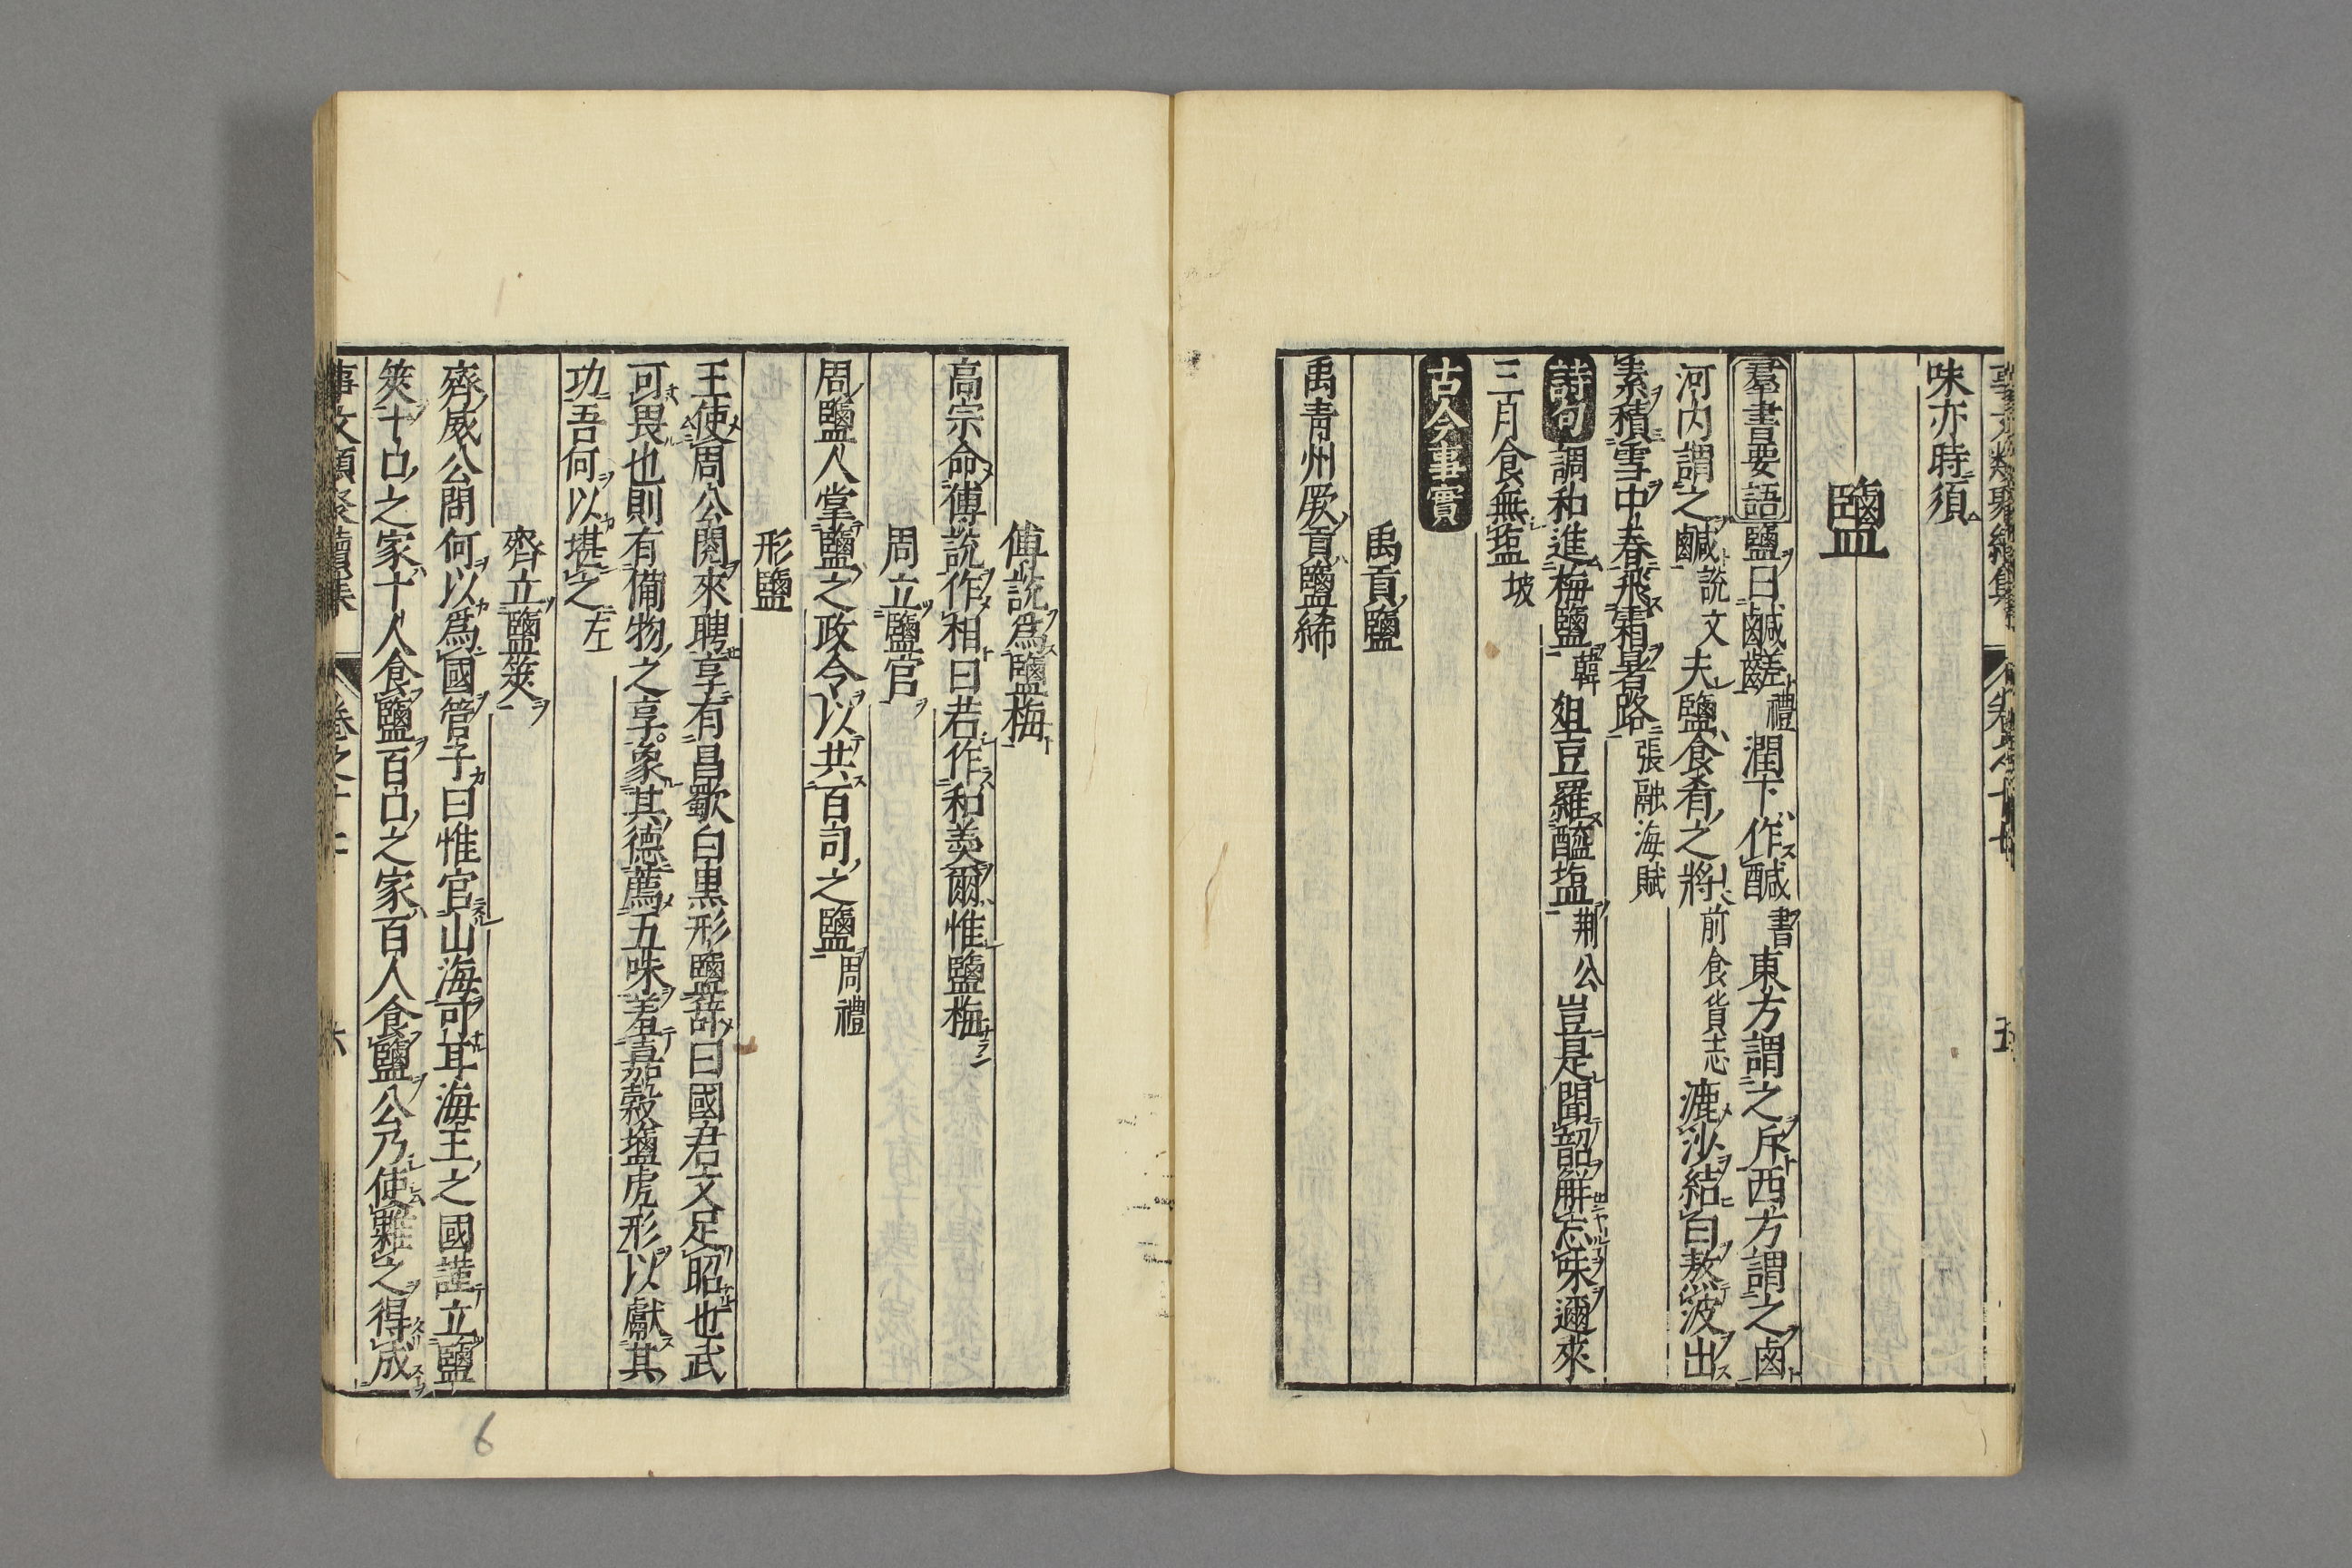 味亦時須
鹽
羣書要語鹽曰鹹鹺禮潤下作醎書東方謂之斥西方謂之鹵
河内謂之鹹說文夫鹽食肴之將前食貨志漉沙結白熬波出
素積雪中春飛霜暑路張融海賦
詩句調和進梅鹽韓俎豆羅醯塩荆公豈是聞韶解忘味邇來
三月食無塩坡
古今事實
禹貢鹽
禹青州厥貢鹽絺
傅說爲鹽梅
高宗命傅說作相曰若作和羮爾惟鹽梅
周立鹽官
周鹽人掌鹽之政令以共百司之鹽周禮
形鹽
王使周公閱來聘享有昌歜白黒形鹽辭曰國君文足昭也武
可畏也則有備物之享象其德薦五味羞嘉穀塩虎形以獻其
功吾何以堪之左
齊立鹽筴
齊威公問何以爲國管子曰惟官山海可耳海王之國謹立鹽
筴十口之家十人食鹽百口之家百人食鹽公乃使糶之得成
事文類聚續集 卷之十七 六
6